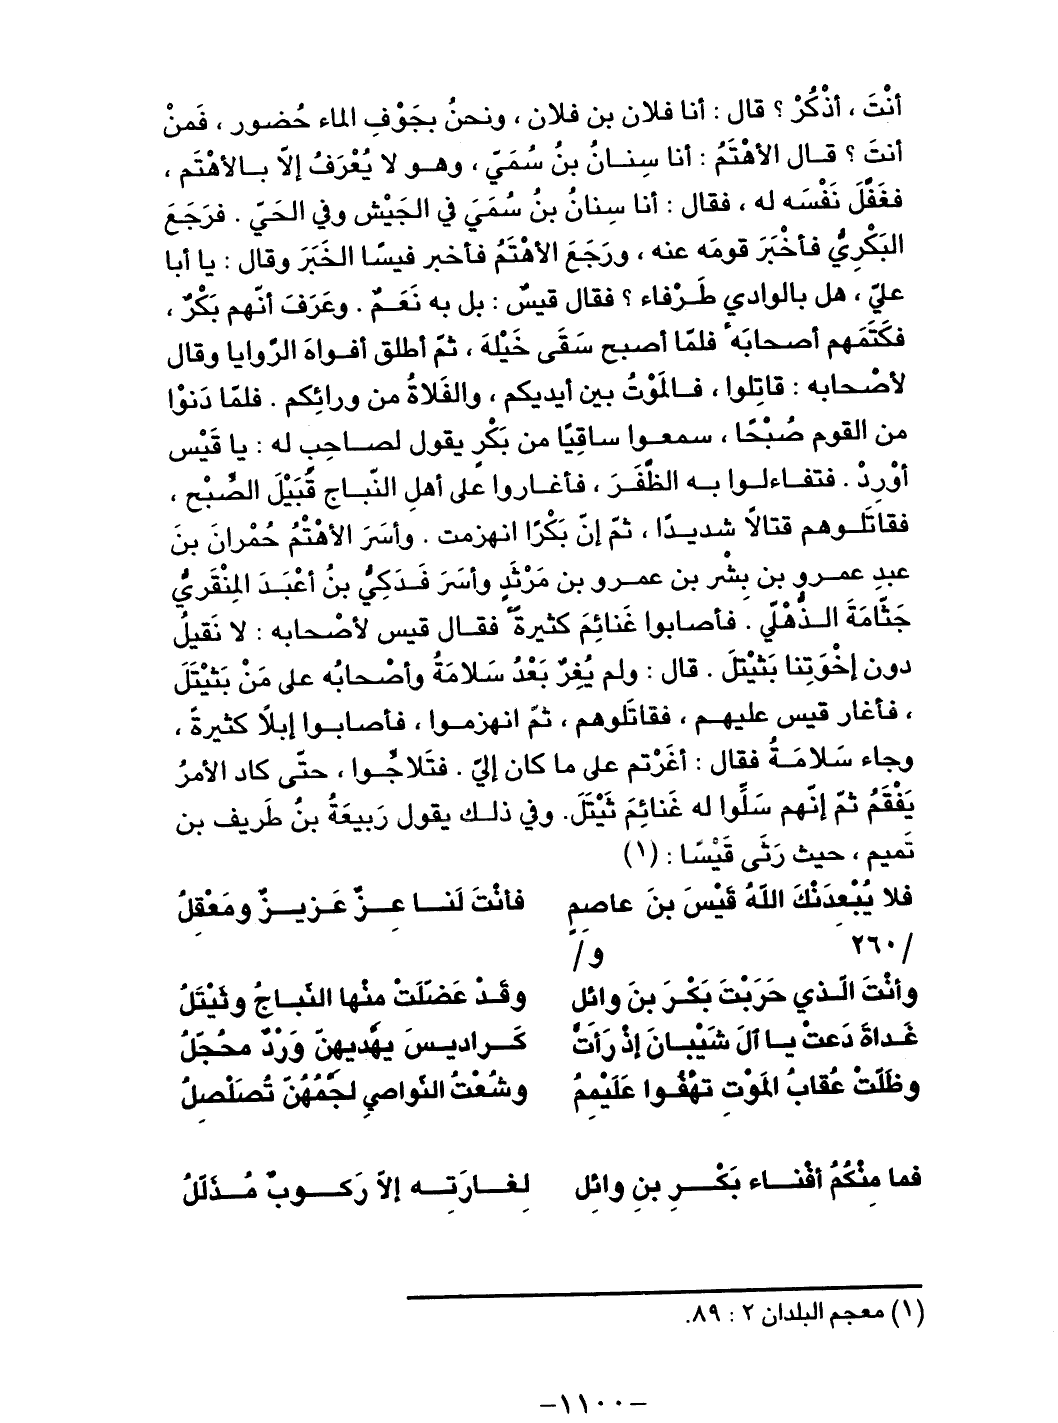 أنْتَ ، أذْكُرْ ؟ قال : أنا فلان بن فلان ، ونحنُ بجَوْفِ الماء حُضور ، فَمنْ
أنتَ ؟ قـال الأهْتَمُ : أنا سِنـانُ بنُ سُمَيّ ، وهـو لا يُعْرَفُ إلاّ بـالأهْتَم ،
فغَفَّلَ نَفْسَه له ، فقال : أنا سِنانُ بنُ سُمَيَ في الجَيْش وفي الحَيّ . فرَجَعَ
البَكْرِيُّ فأخْبَرَ قومَه عنه ، ورَجَعَ الأهْتَمُ فأخبر فيسًا الخَبَرَ وقال : يا أبا
عليّ ، هل بالوادي طَرْفاء ؟ فقال قيسٌ : بل به نَعَـمٌ . وعَرَفَ أنّهم بَكْرٌ ،
فكَتَمَهم أصحابَه ُ فلمّا أصبح سَقَى خَيْلهَ ، ثمّ أطلق أفـواهَ الرّوايا وقال
لأصْحابه : قاتِلوا ، فـالمَوْتُ بين أيديكم ، والفَلاةُ من ورائِكم . فلمّا دَنوْا
من القوم صُبْحًا ، سمعـوا ساقيًا من بَكْرٍ يقول لصـاحِبٍ له : يا قَيْس
أوْرِدْ . فتفـاءلـوا بـه الظّفَرَ ، فأغـاروا على أهلِ النّبـاج قُبَيْلَ الصُبْح ،
فقاتَلـوهم قتالاً شديـدًا ، ثمّ إنّ بَكْرًا انهزمت . وأسَرَ الأهْتْمُ حُمْرانَ بنَ
عبدِ عمـرو بن بِشْر بن عمـرو بن مَرْثَدٍ وأسَرَ فَـدَكِيُّ بنُ أعْبَـدَ المِنْقَريُّ
جَثّامَةَ الـذُّهْليّ . فأصابوا غَنائِمَ كثيرةً فقـال قيس لأصْحابه : لا نَقيلُ
دون إخْوَتِنا بَثَيْتلَ . قال : ولم يُغِرْ بَعْدُ سَلامَةُ وأصْحابُه على مَنْ بَثيْتَلَ
، فأغار قيس عليهـم ، فقاتَلوهم ، ثمّ انهزمـوا ، فأصابـوا إبلاً كثيرةً ،
وجاء سَلامَـةُ فقال : أغَرْتم على ما كان إليّ . فتَلاجُّـوا ، حتّى كاد الأمرُ
يَفْقَمُ ثمّ إنّهم سَلِّوا له غَنائِمَ ثَيْتلَ. وفي ذلـك يقول رَبيعَةُ بنُ طَريف بن
تَميم ، حيث رَثَى قَيْسًا : (١)
فلا يُبْعِدَنْكَ اللهُ قَيْسَ بنَ عاصِمٍ فأنْتَ لَنـا عِـزٌّ عَـزيـزٌ ومَعْقِلُ
/٢٦٠ و/
وأنْتَ الّـذي حَرَبْتَ بَكْـرَ بنَ وائل وقَـدْ عَضَلَتْ منْها النّبـاجُ وثَيْتَلُ
غَـداةَ دَعتْ يـا آلَ شَيْبـانَ إذْ رَأتْ كَـراديـسَ يهْديهنّ وَرْدٌ محُجَلُ
وظَلّتْ عُقابُ المَوْتِ تهْفُـوا عَلَيْهِمُ وشُعْتُ النّواصي لجُمُهُنّ تُصَلْصِلُ
فما مِنْكُمُ أفْنـاء بَكْـرِ بنِ وائِل لِغـارَتِـه إلاّ رَكـوبٌ مُـذَلَلُ
(١) معجم البلدان ٢ : ٨٩.
–١١٠٠–